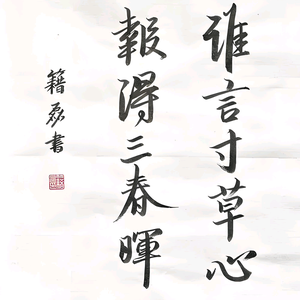 誰言寸草心
報得三春暉
籍磊書